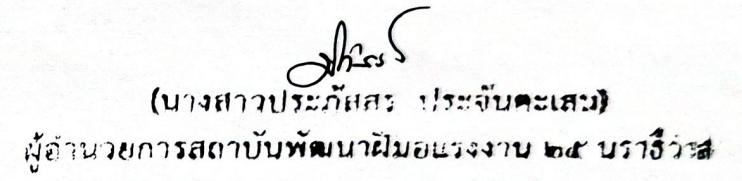 (นางสาวประภัสสร ประจันตะเสน)
ผู้อำนวยการสถาบันพัฒนาฝีมือแรงงาน ๒๕ นราธิวาส